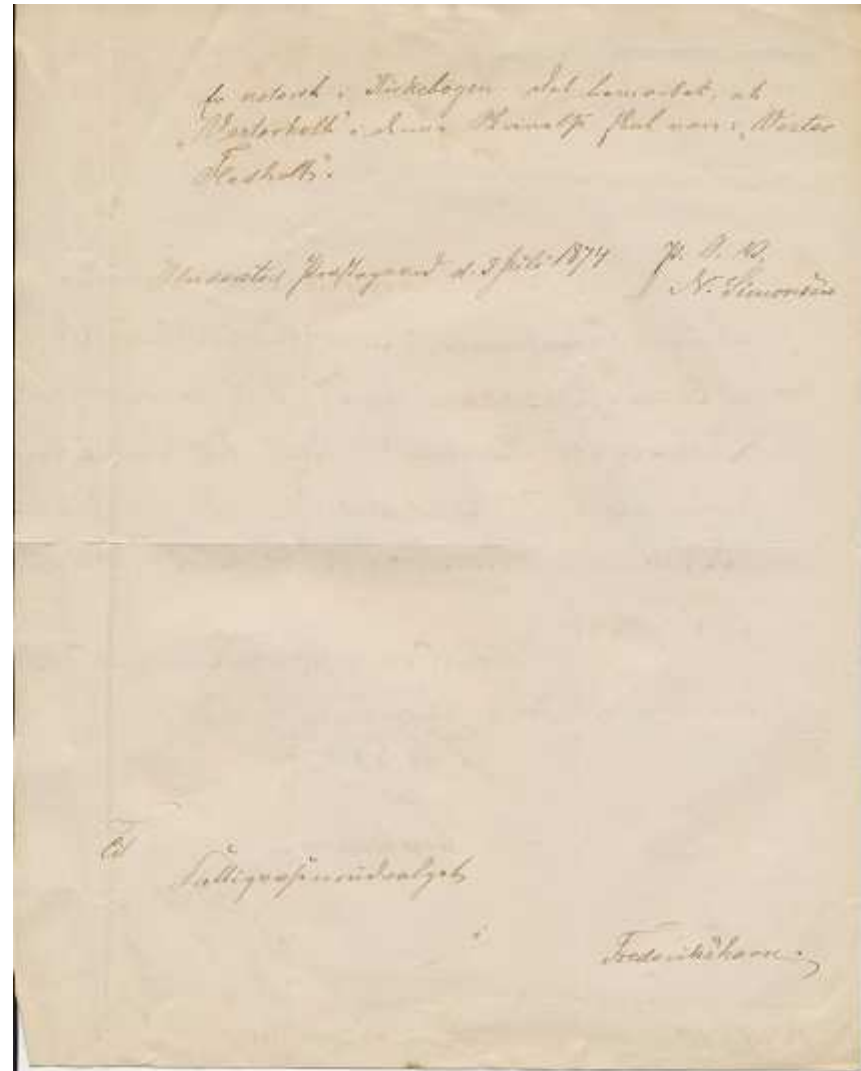 er noteret i Kirkebogen det bemærket, at
"Westerholt" i denne skal være "Wester
Fladholt".
Præstegaard d. 3 Juli 1874 P. V. N. Simonsen
Til
Fattigvæsenudvalget
i
Frederikshavn.